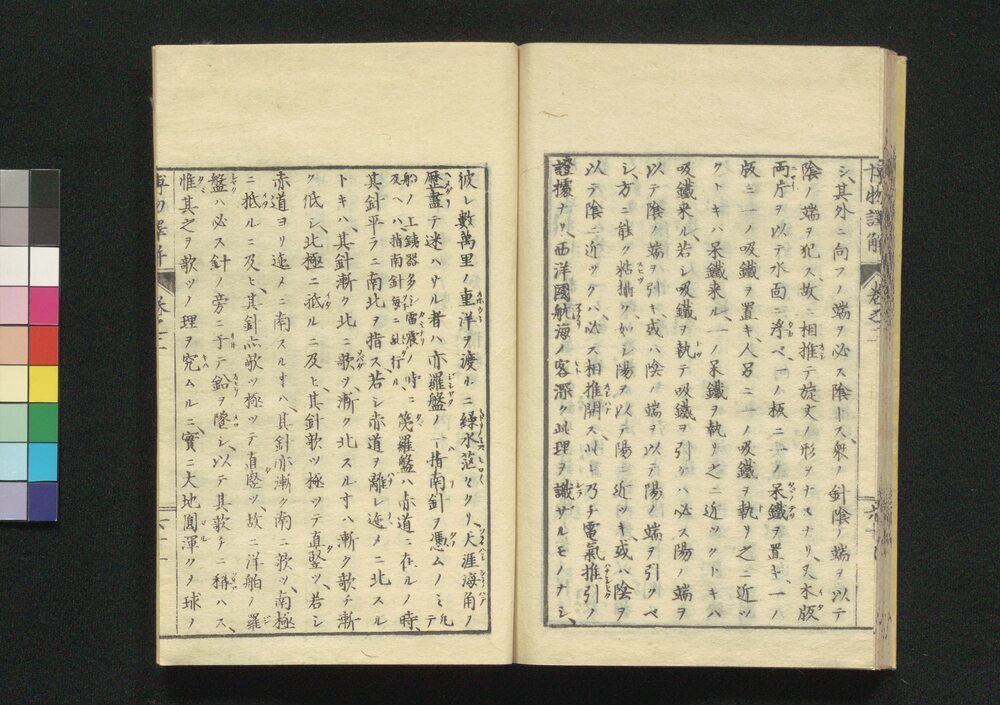 博物譯解
シ、其外ニ向フノ端ヲ必ス陰トス、衆ノ針陰ノ端ヲ以テ
陰ノ端ヲ犯ス、故ニ相推テ旋丈ノ形ヲナスナリ、又木版
両片ヲ以テ水面ニ浮ベ、一ノ板ニ一ノ呆鐵ヲ置キ、一ノ
版ニ一ノ吸鐵ヲ置キ、人另ニ一ノ吸鐵ヲ執リ之ニ近ツ
クトキハ呆鐵来ル、一ノ呆鐵ヲ執リ之ニ近ツクトキハ
吸鐵来ル、若シ吸鐵ヲ執テ吸鐵ヲ引ケハ必ス陽ノ端ヲ
以テ陰ノ端ヲ引キ、或ハ陰ノ端ヲ以テ陽ノ端ヲ引クベ
シ、方ニ能ク粘攝ク、如シ陽ヲ以テ陽ニ近ツキ、或ハ陰ヲ
以テ陰ニ近ツクハ、必ス相推開ス、此レ乃チ電氣推引ノ
證據ナリ、西洋國航海ノ客深ク此理ヲ識ザルモノナシ、
彼レ數萬里ノ重洋ヲ渡ルニ緑水茫々タリ、天涯海角ノ
歴盡テ迷ハサル者ハ亦羅盤ノ一指南針ヲ憑ムノミ、凡テ
船ノ上鐵器多シ雷震ノ時ニ
及ヘハ指南針毎ニ乱行ル、
羅盤ハ赤道ニ在ルノ時、
其針平ラニ南北ヲ指ス、若シ赤道ヲ離レ迤メニ北スル
トキハ、其針漸ク北ニ欹ヲ、漸ク北スルヿハ漸ク欹チ漸
ク低シ、北極ニ抵ルニ及ヒ、其針欹ツ極ツテ直竪ツ、若シ
赤道ヨリ迤メニ南スルヿハ、其針亦漸ク南ニ欹ツ、南極
ニ抵ルニ及ヒ、其針亦欹ツ極ツテ直竪ツ、故ニ洋舶ノ羅
盤ハ必ス針ノ旁ニ于テ鉛ヲ墜シ、以テ其欹チニ稱ハス、
惟其之ヲ欹ツノ理ヲ究ムルニ、實ニ大地圓渾クヲ球ノ